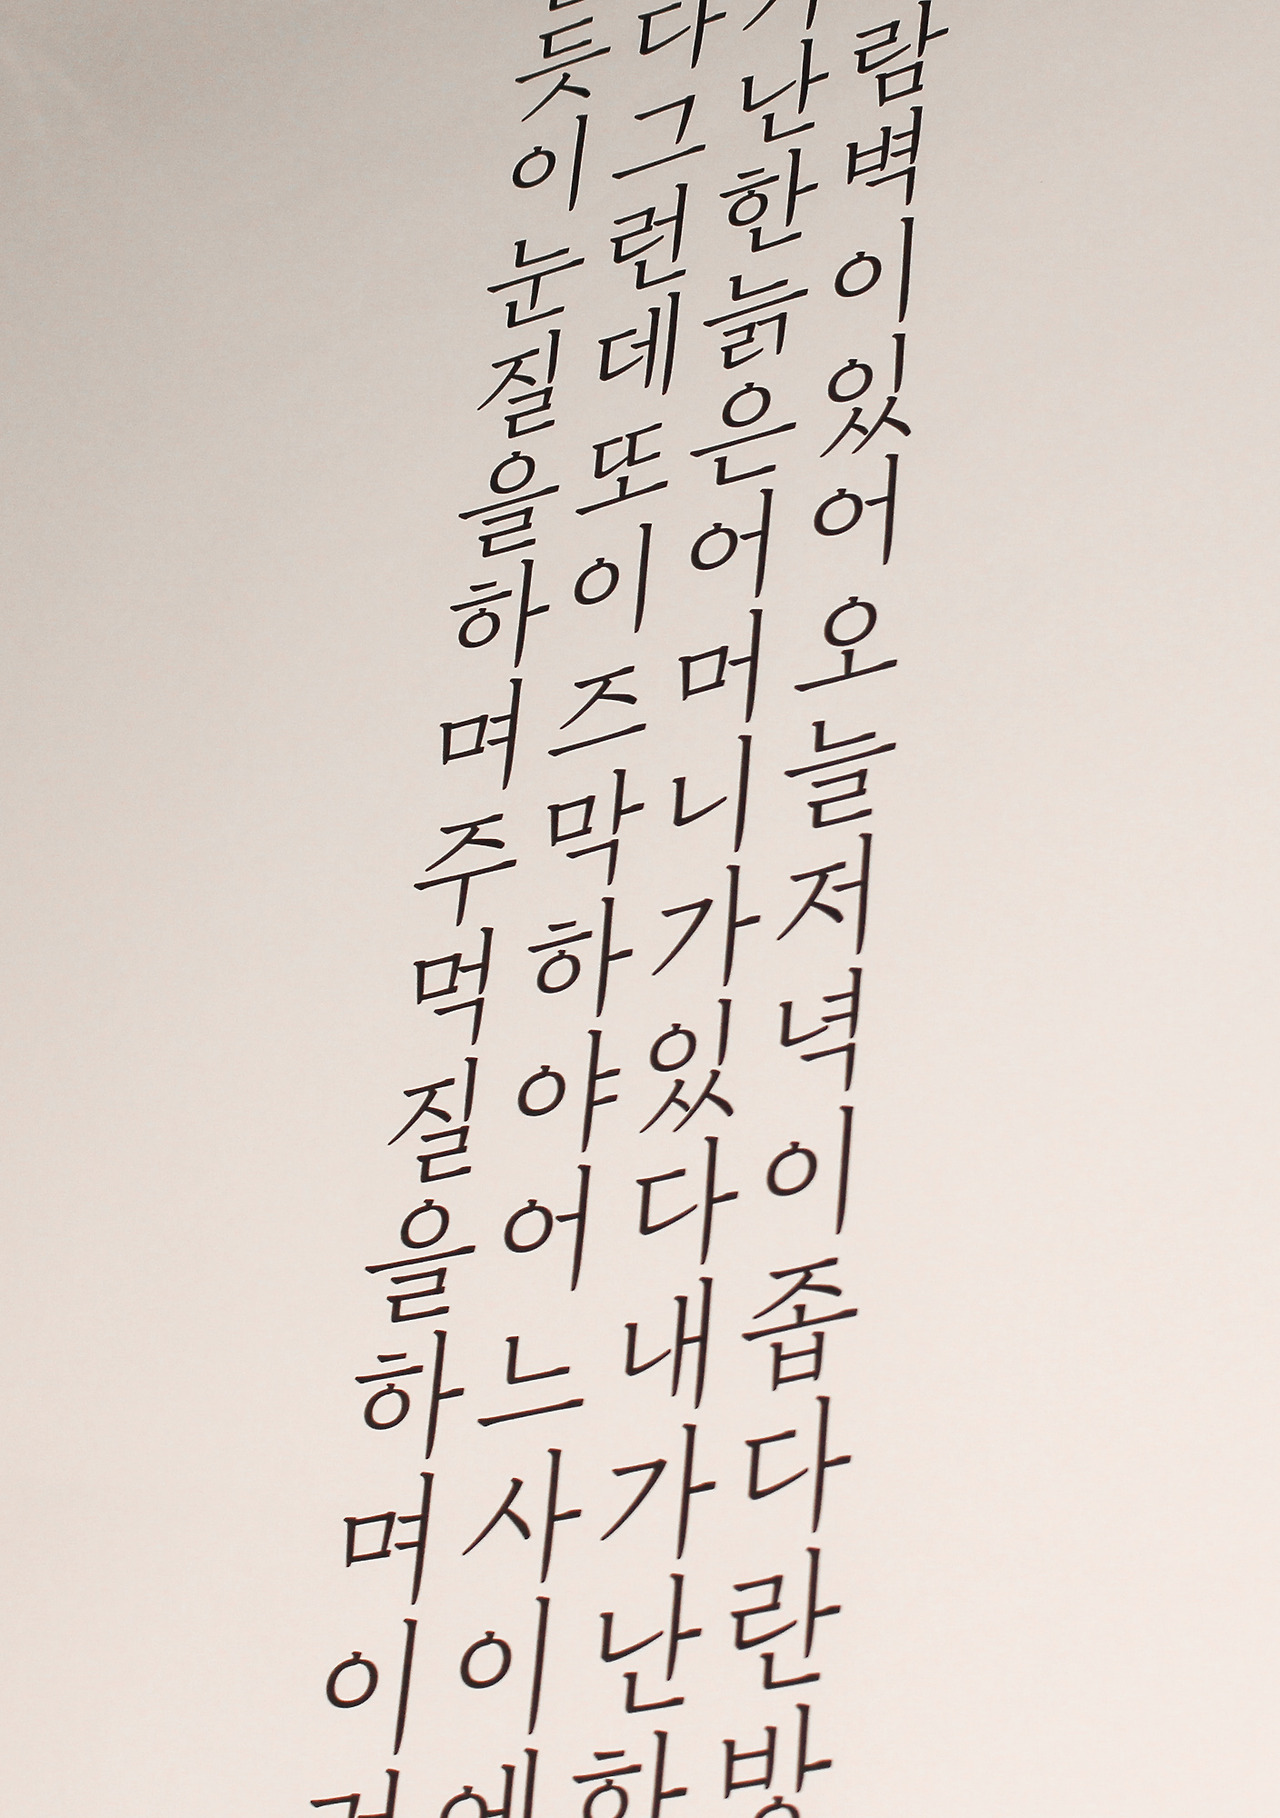 람벽이있어오늘저녁이좁다란방
난한늙은어머니가있다내가난한
다그런데또이즈막하야어느사이에
듯이눈질을하며주먹질을하며이